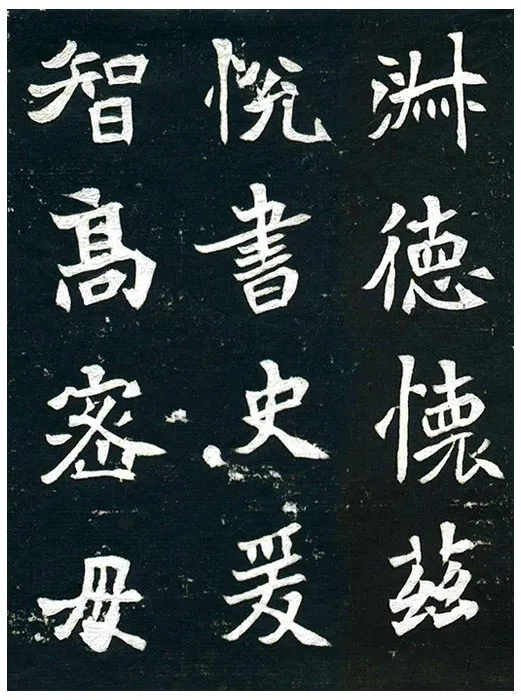 淵德懷茲
悅書史爰
智高密母